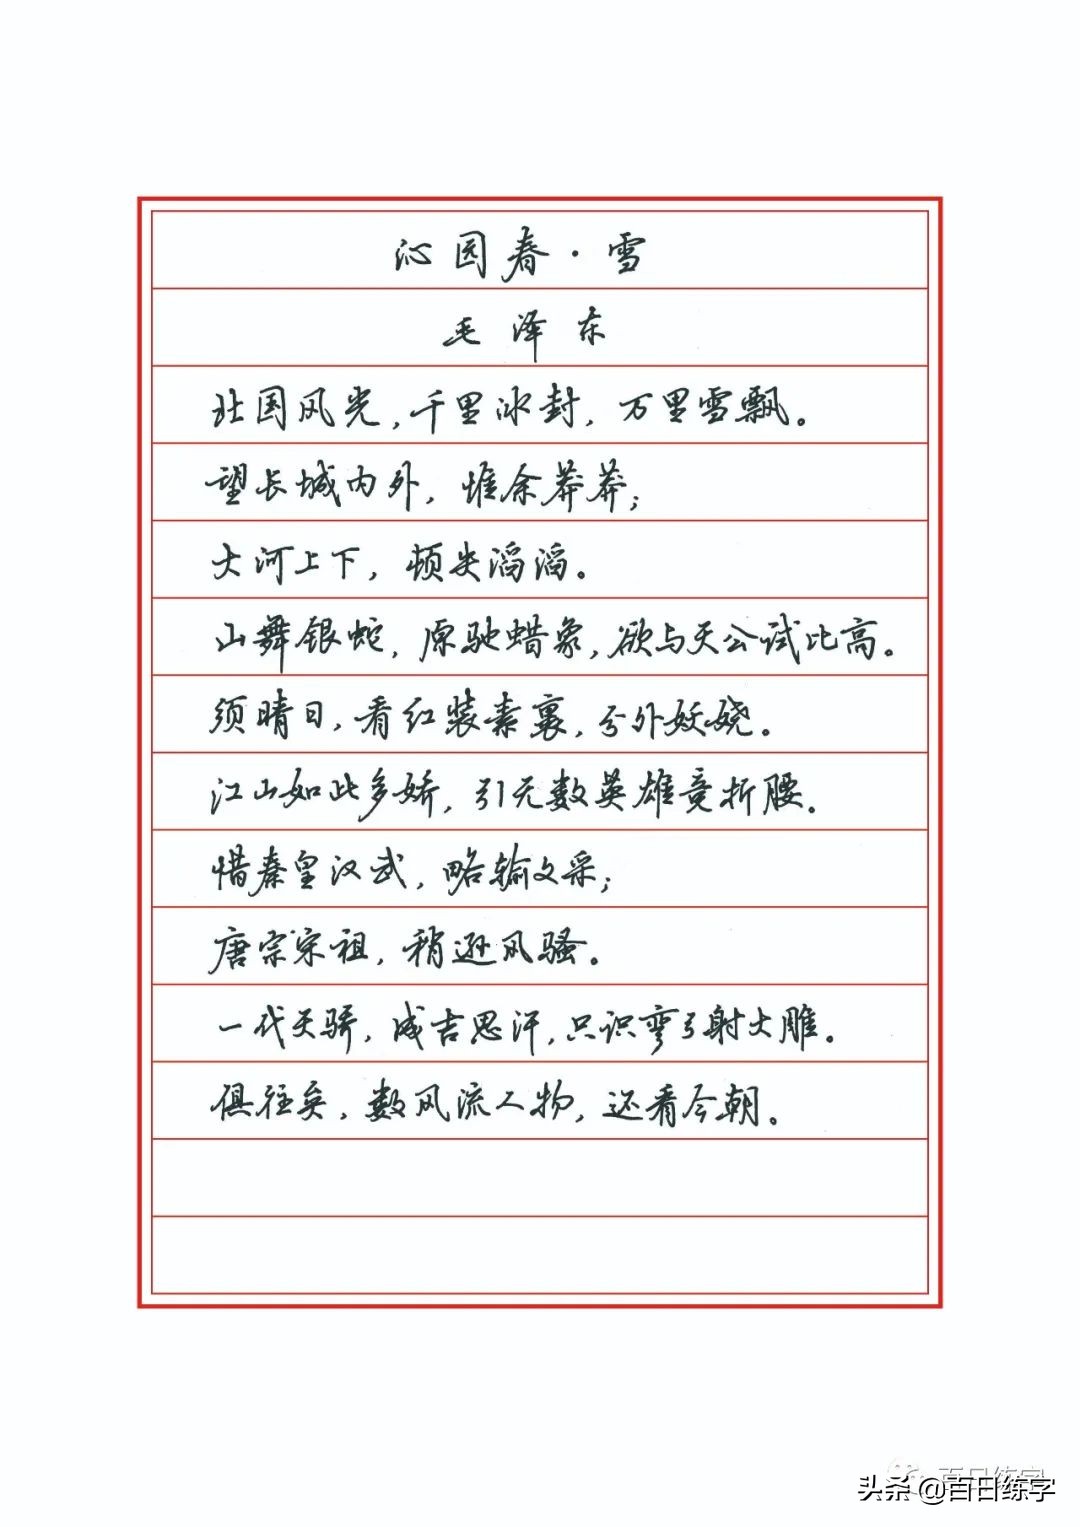 沁园春·雪
毛泽东
北国风光,千里冰封,万里雪飘。
望长城内外,惟余莽莽;
大河上下,顿失滔滔。
山舞银蛇,原驰蜡象,欲与天公试比高。
须晴日,看红装素裹,分外妖娆。
江山如此多娇,引无数英雄竞折腰。
惜秦皇汉武,略输文采;
唐宗宋祖,稍逊风骚。
一代天骄,成吉思汗,只识弯弓射大雕。
俱往矣,数风流人物,还看今朝。
百日练字
头条@百日练字